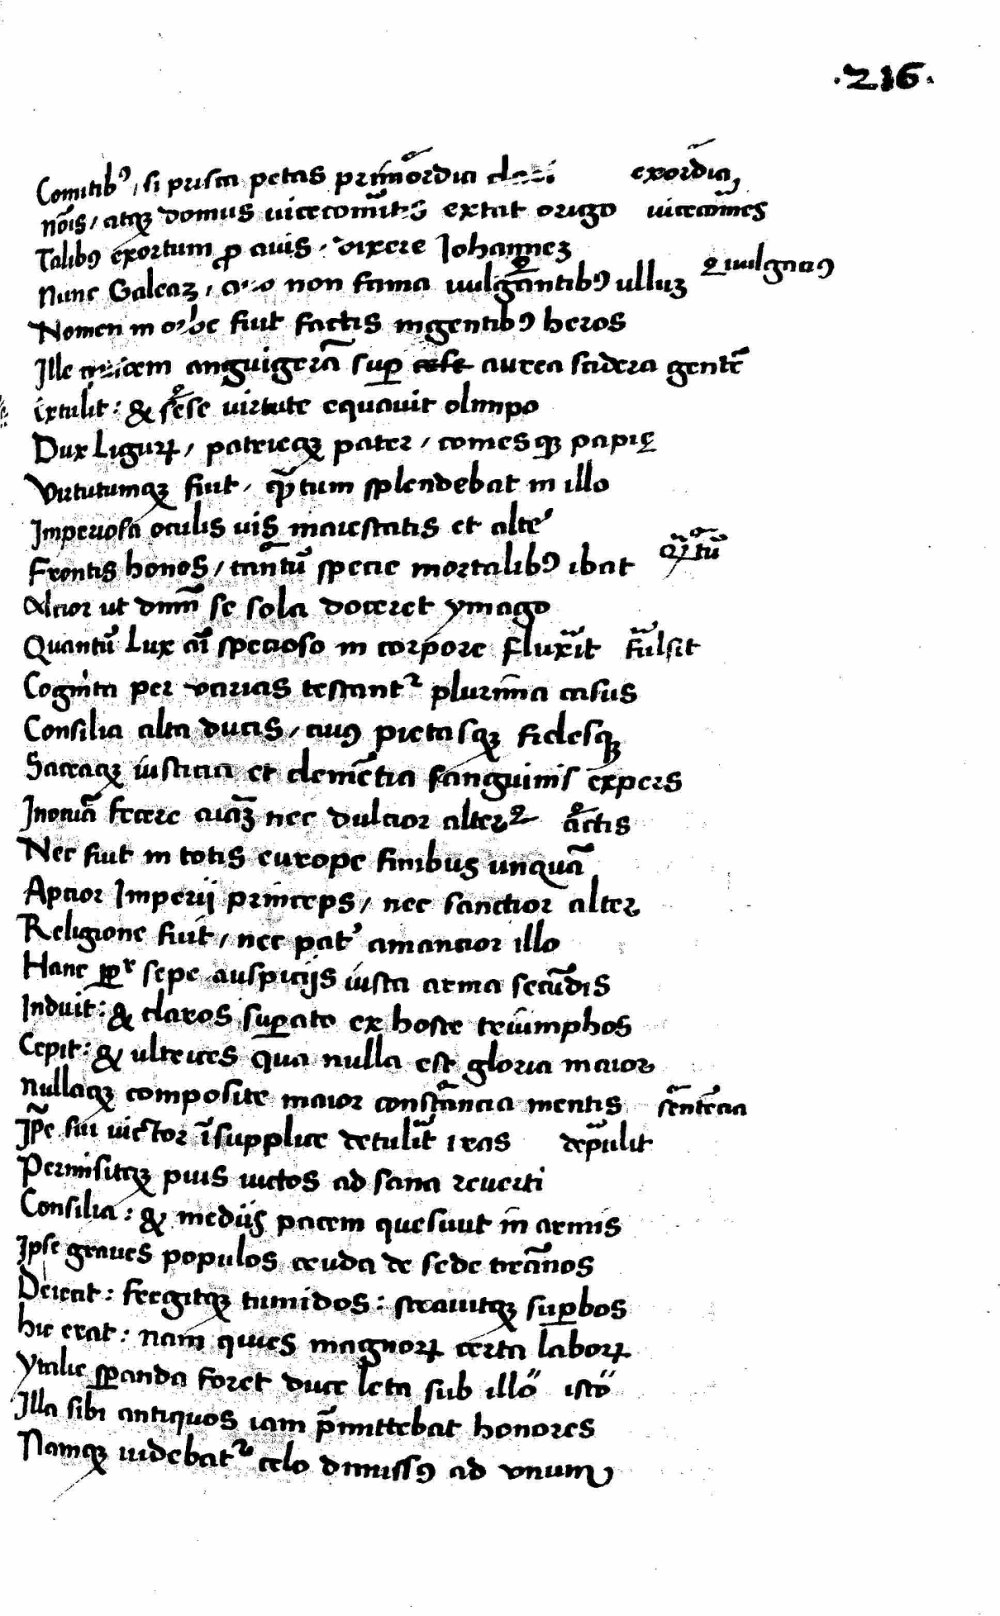 ·216·
Comitibꝰ, si prisca petas primordia clari exordia,
nois, atqꝫ domus uicecomitis extat origo uicecomes
Talibꝰ exortum ꝓ auis. dixere Iohannez
Nunc Galeaz, non fama uulgantibꝰ ulluz ꝓ uulgatꝰ
Nomen in orbe fuit factis ingentibꝰ heros
Ille anguigerā suꝑ aurea sidera gentē
Extulit: & sese uirtute equauit olimpo
Dux Liguꝝ, patrieqꝫ pater, comesqꝫ papię
Virtutumqꝫ fuit, qᷓtum splendebat in illo
Imperiosa oculis uis maiestatis et alte
Frontis honos, tantū specie mortalibꝰ ibat qᷓtū
Altior ut dnm̄ se sola doceret ymago
Quantū lux aī specioso in corpore fluxit fulsit
Cognita per varias testantꝛ plurima casus
Consilia alta ducis, cuiꝰ pietasqꝫ fidesqꝫ
Sacraqꝫ iusticia et clemētia sanguinis expers
Inocuā fecere uiaꝫ nec dulcior alter artis
Nec fuit in totis europe finibus unquā
Aptior Imperii princeps, nec sanctior alter
Religione fuit, nec pat' amancior illo
Hanc sepe auspicijs iusta arma secūdis
Induit: & claros suꝑato ex hoste triumphos
Cepit: & ultrices qua nulla est gloria maior
nullaqꝫ composite maior constancia mentis sentēcia
Ip̄e sui uictor ī supplice detulit iras depulit
Permisitqꝫ pius uictos ad sana reuerti
Consilia: & medijs pacem quesiuit in armis
Ipse graues populos cruda de sede tirānos
Deiecit: fregitqꝫ tumidos: strauitqꝫ suꝑbos
hic erat: nam quies magnoꝝ certa laboꝝ
Ytalie sꝑanda foret duce leta sub illo isto
Illa sibi antiquos iam p̄mittebat honores
Namqꝫ uidebatꝛ celo dimissꝰ ad vnum